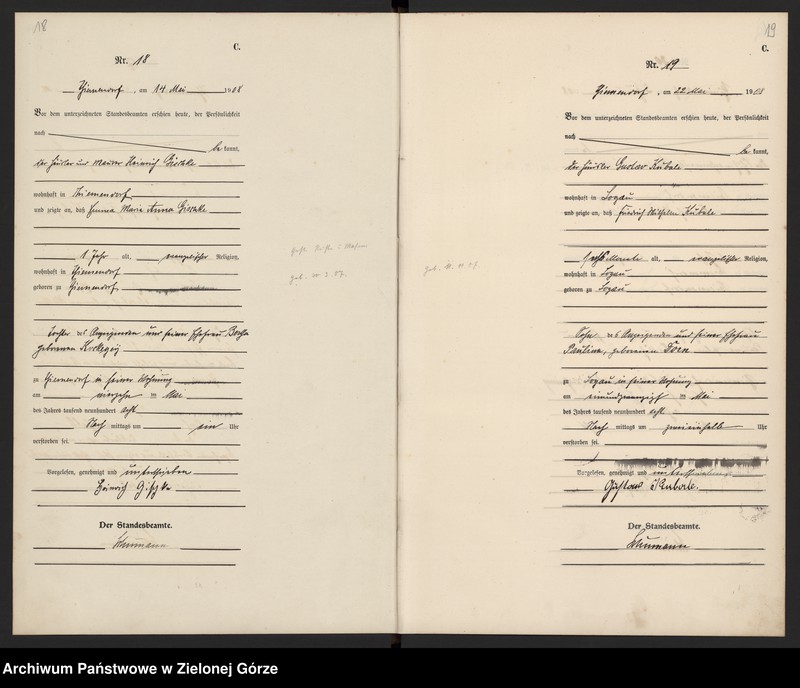 18
C.
Nr. 18
am 14 Mai 1908
Vor dem unterzeichneten Standesbeamten erschien heute, der Persönlichkeit
nach
be kannt,
der Häusler und Maurer Heinrich
wohnhaft in
und zeigte an, daß Emma Maria Anna
1 Jahr alt, evangelischer Religion,
wohnhaft in
geboren zu
Tochter des Anzeigenden und seiner Ehefrau
geborenen
zu in seiner Wohnung
am vierzehn ten Mai
des Jahres tausend neunhundert acht
Nach mittags um ein Uhr
verstorben sei.
Vorgelesen, genehmigt und unterschrieben
Heinrich
Der Standesbeamte.
Schumann
geb. 3. 07.
19
C.
Nr. 19
am 22 Mai 1908
Vor dem unterzeichneten Standesbeamten erschien heute, der Persönlichkeit
nach
be kannt,
der Häusler Gustav Kubale
wohnhaft in Logau
und zeigte an, daß Friedrich Wilhelm Kubale
Monate alt, evangelischer Religion,
wohnhaft in Logau
geboren zu Logau
Sohn des Anzeigenden und seiner Ehefrau
Pauline, geborenen
zu Logau in seiner Wohnung
am einundzwanzigst ten Mai
des Jahres tausend neunhundert acht
Nach mittags um zweieinhalb Uhr
verstorben sei.
Vorgelesen, genehmigt und unterschrieben
Gustav Kubale.
Der Standesbeamte.
Schumann
Archiwum Państwowe w Zielonej Górze